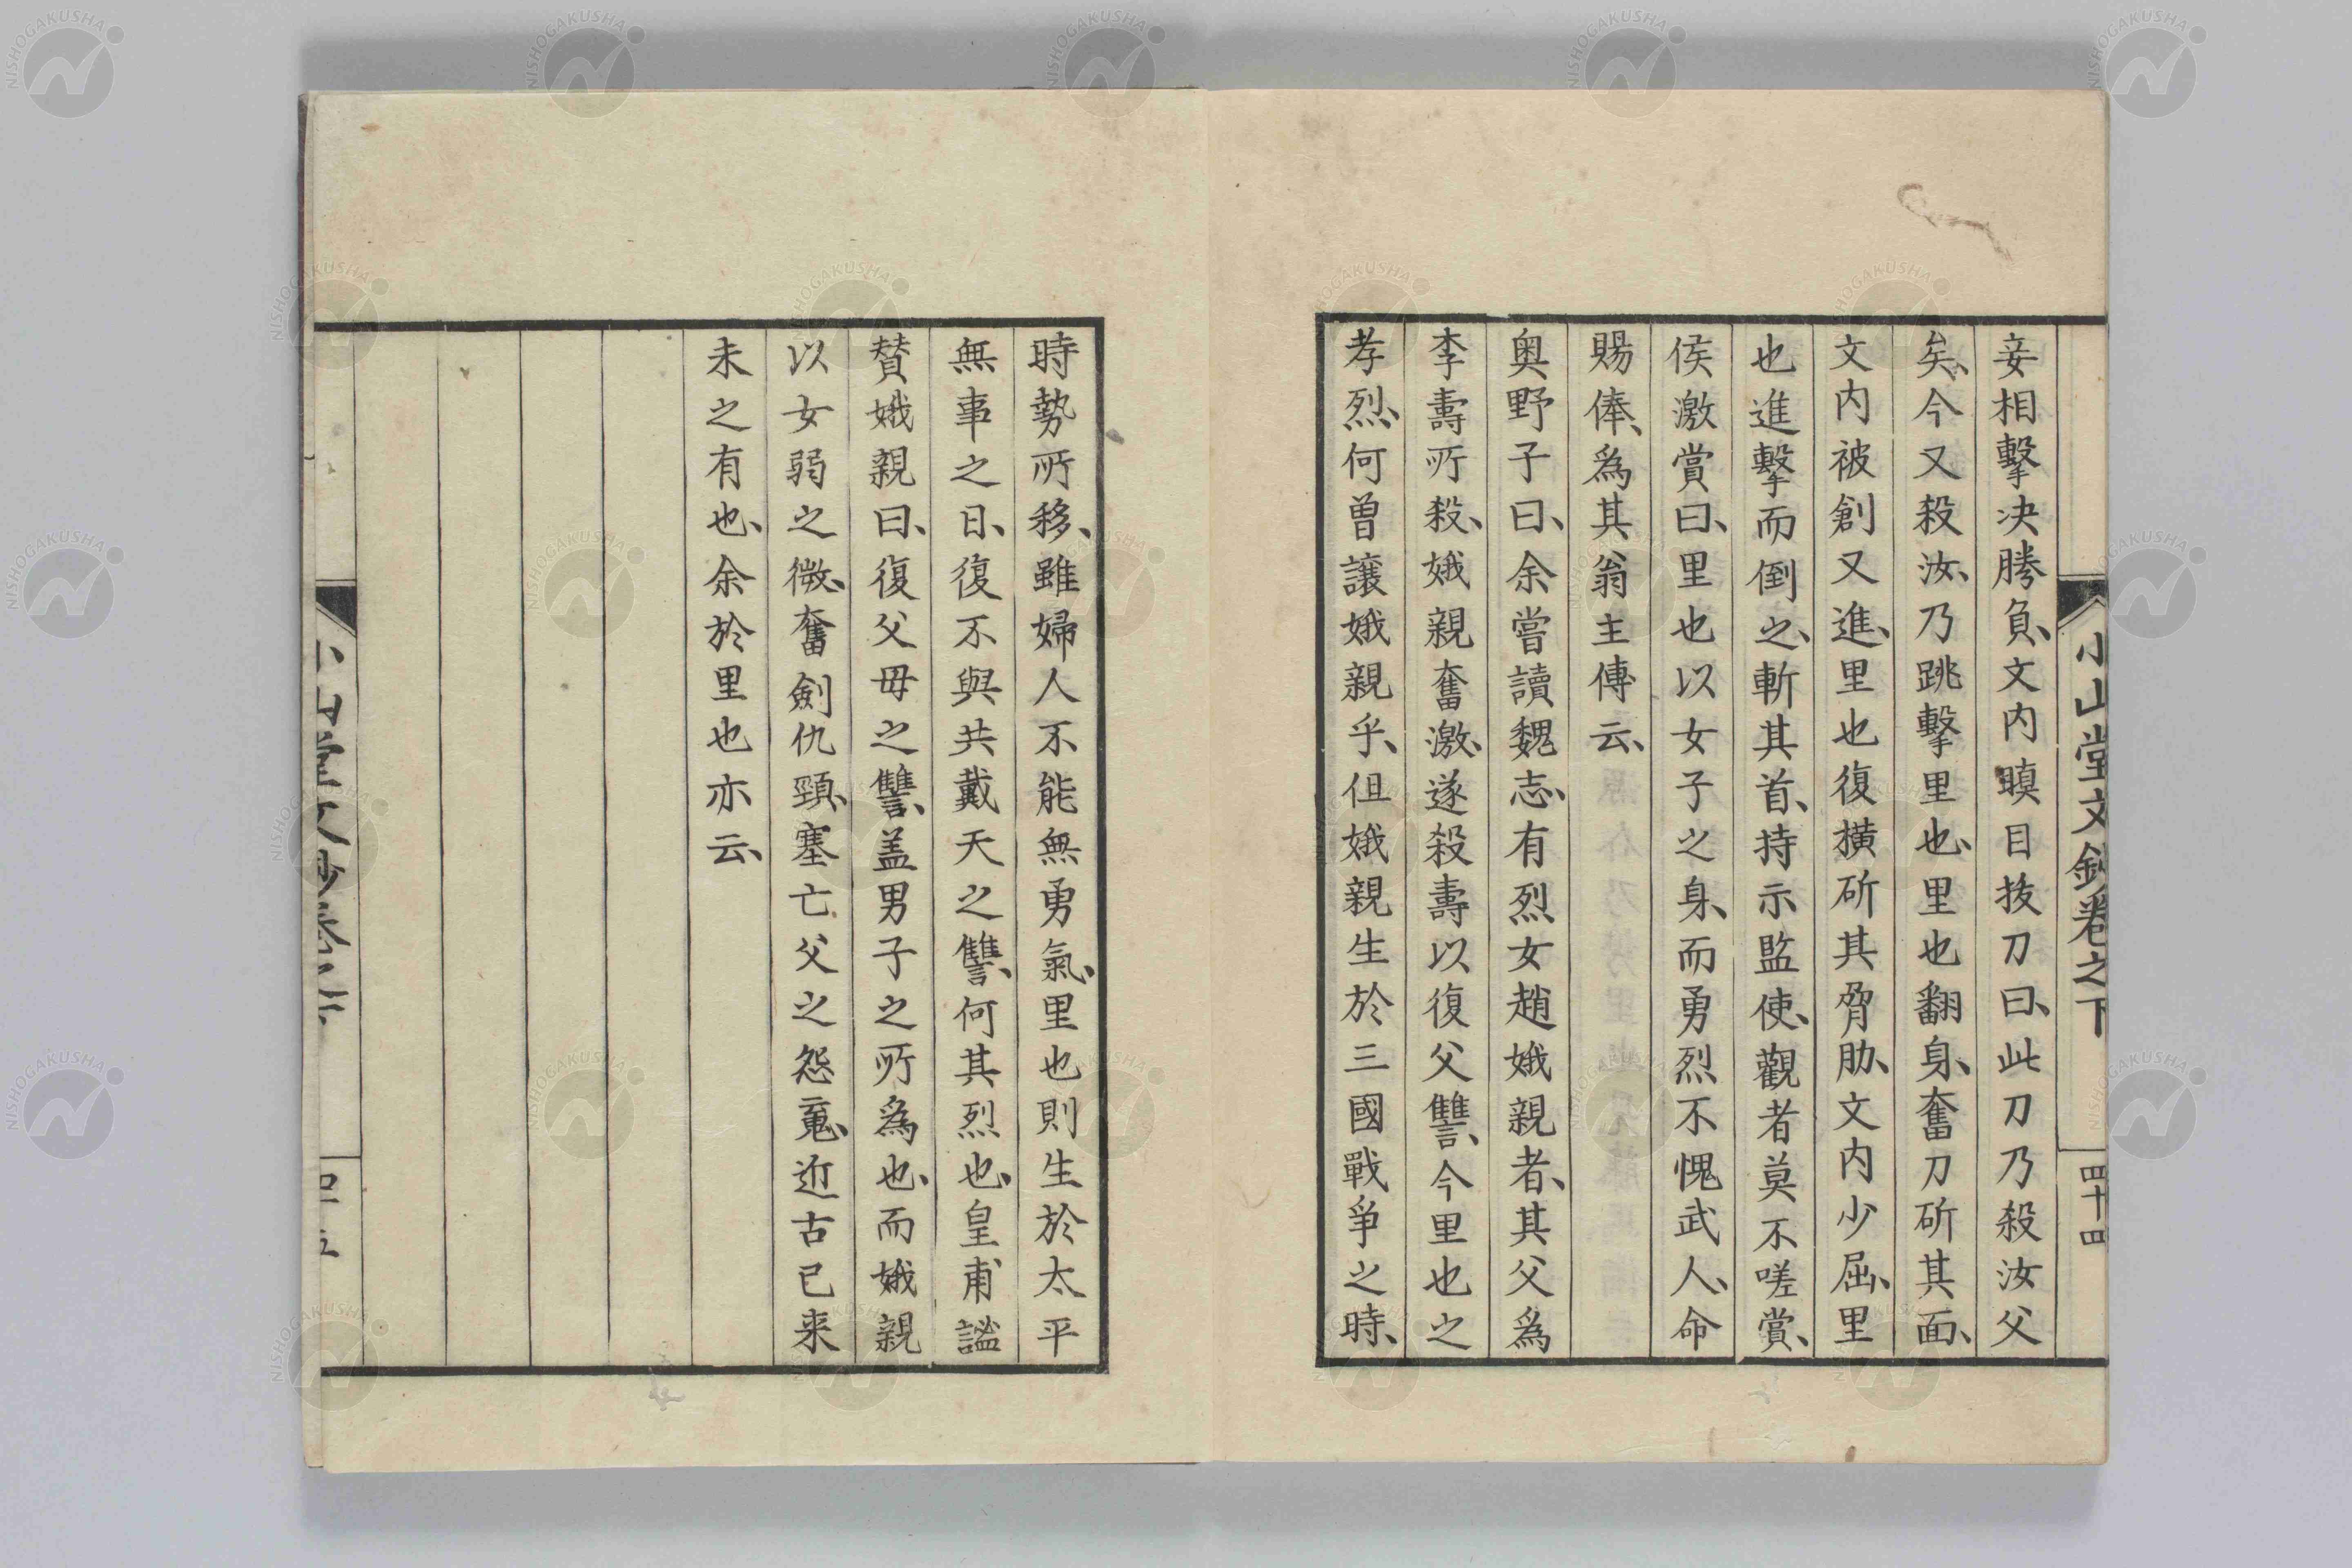 小山堂文鈔卷之下
四十四
妾相擊決勝負、文内瞋目拔刀曰、此刀乃殺汝父
矣、今又殺汝、乃跳擊里也、里也翻身、奮刀斫其面、
文内被創又進、里也復横斫其脅肋、文内少屈、里
也進擊而倒之、斬其首、持示監使、觀者莫不嗟賞、
侯激賞曰、里也以女子之身、而勇烈不愧武人、命
賜俸、爲其翁主傳云、
奧野子曰、余嘗讀魏志、有烈女趙娥親者、其父爲
李壽所殺、娥親奮激、遂殺壽以復父讐、今里也之
孝烈、何曽讓娥親乎、但娥親生於三國戰爭之時、
時勢所移、雖婦人不能無勇氣、里也則生於太平
無事之日、復不與共戴天之讐、何其烈也、皇甫謐
賛娥親曰、復父母之讐、盖男子之所爲也、而娥親
以女弱之微、奮劍仇頸、塞亡父之怨䰟、近古已来
未之有也、余於里也亦云、
NISHOGAKUSHA